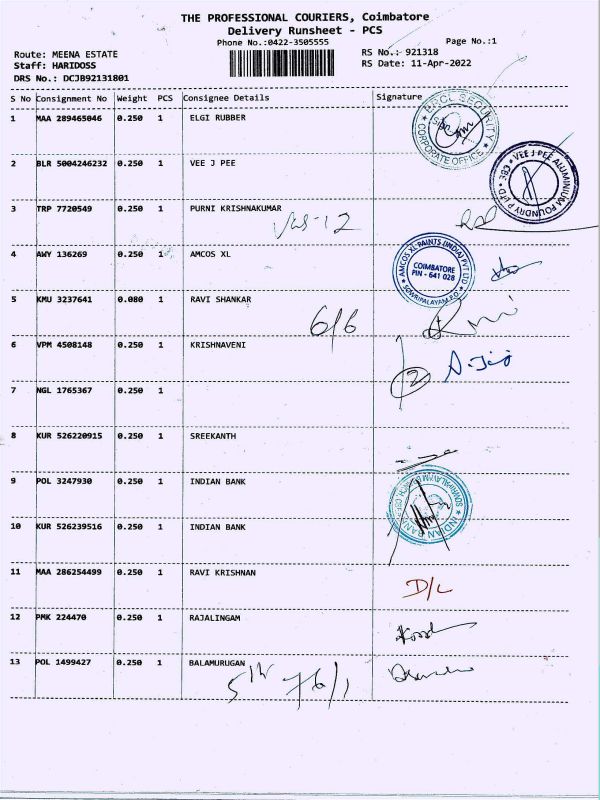 THE PROFESSIONAL COURIERS, Coimbatore
Delivery Runsheet - PCS
Phone No.:0422-3505555
Page No.:1
Route: MEENA ESTATE
RS No.: 921318
Staff: HARIDOSS
RS Date: 11-Apr-2022
DRS No.: DCJB92131801
S No Consignment No Weight PCS Consignee Details Signature
1 MAA 289465046 0.250 1 ELGI RUBBER
BPCL SECURITY CORPORATE OFFICE
2 BLR 5004246232 0.250 1 VEE J PEE
383 VEE J PEE ALUMINIUM FOUNDRY P LTD
3 TRP 7720549 0.250 1 PURNI KRISHNAKUMAR
4 AWY 136269 0.250 1 AMCOS XL
AMCOS XL PAINTS (INDIA) PVT LTD
COIMBATORE
PIN - 641 028
SOWRIPALAYAM P.O.
5 KMU 3237641 0.080 1 RAVI SHANKAR
6/6
6 VPM 4508148 0.250 1 KRISHNAVENI
2
7 NGL 1765367 0.250 1
8 KUR 526220915 0.250 1 SREEKANTH
9 POL 3247930 0.250 1 INDIAN BANK
INDIAN BANK SOWRIPALAYAM
10 KUR 526239516 0.250 1 INDIAN BANK
11 MAA 286254499 0.250 1 RAVI KRISHNAN
D/L
12 PMK 224470 0.250 1 RAJALINGAM
13 POL 1499427 0.250 1 BALAMURUGAN
76/1